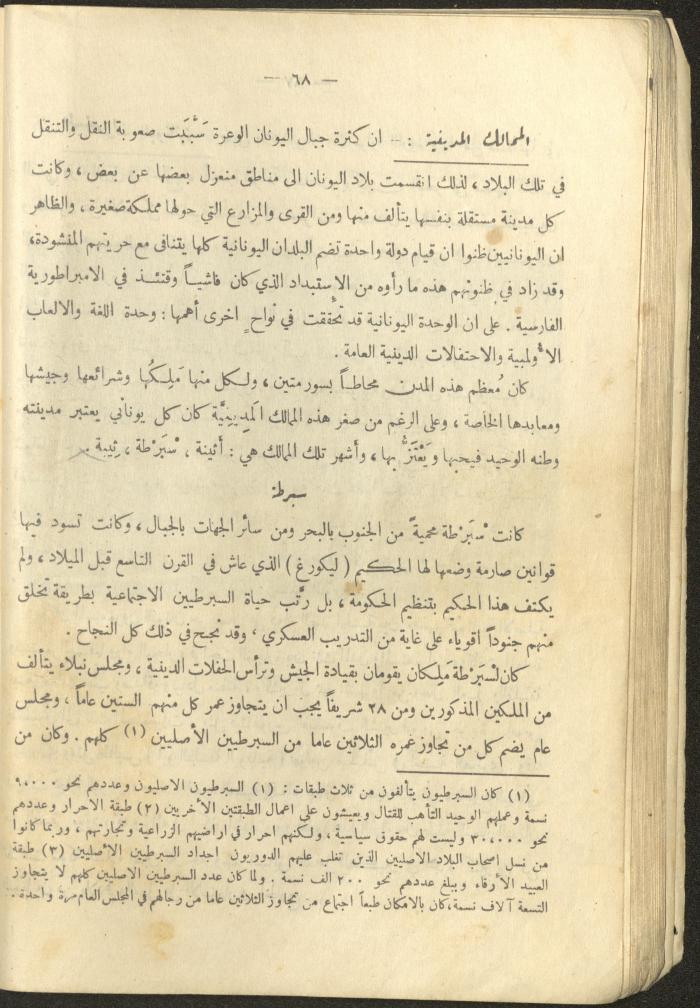 — ٦٨ —
الممالك المدينية : — ان كثرة جبال اليونان الوعرة سَبَّبَت صعوبة النقل والتنقل
في تلك البلاد ، لذلك انقسمت بلاد اليونان الى مناطق منعزل بعضها عن بعض ، وكانت
كل مدينة مستقلة بنفسها يتألف منها ومن القرى والمزارع التي حولها مملكة صغيرة ، والظاهر
ان اليونانيين ظنوا ان قيام دولة واحدة تضم البلدان اليونانية كلها يتنافى مع حريتهم المنشودة،
وقد زاد في ظنونهم هذه ما رأوه من الإستبداد الذي كان فاشيـاً وقتئـذ في الامبراطورية
الفارسية . على ان الوحدة اليونانية قد تحققت في نواح اخرى أهمها : وحدة اللغة والالعاب
الأولمبية والاحتفالات الدينية العامة .
كان مُعظم هذه المدن محاطـاً بسور متين ، ولكل منها مَلِكُها وشرائعها وجيشها
ومعابدها الخاصة ، وعلى الرغم من صغر هذه الممالك المَدِينِيَّة كان كل يوناني يعتبر مدينته
وطنه الوحيد فيحبها ويَعْتَزُّ بها ، وأشهر تلك الممالك هي : أثينة ، سْبَرْطة ، ثِيبة .
سبرطة
كانت سْبَرْطة محميةً من الجنوب بالبحر ومن سائر الجهات بالجبال ، وكانت تسود فيها
قوانين صارمة وضعها لها الحكيم ( ليكورغ ) الذي عاش في القرن التاسع قبل الميلاد ، ولم
يكتف هذا الحكيم بتنظيم الحكومة ، بل رتَّب حياة السبرطيين الاجتماعية بطريقة تخلق
منهم جنوداً اقوياء على غاية من التدريب العسكري ، وقد نجح في ذلك كل النجاح .
كان لسْبَرْطة مَلِكان يقومان بقيادة الجيش وترأس الحفلات الدينية ، ومجلس نبلاء يتألف
من الملكين المذكورين ومن ٢٨ شريفاً يجب ان يتجاوز عمر كل منهم الستين عاماً ، ومجلس
عام يضم كل من تجاوز عمره الثلاثين عاما من السبرطيين الأصليين (١) كلهم . وكان من
(١) كان السبرطيون يتألفون من ثلاث طبقات : (١) السبرطيون الاصليون وعددهم نحو ٩٠٠٠
نسمة وعملهم الوحيد التأهب للقتال ويعيشون على اعمال الطبقتين الأخريين (٢) طبقة الاحرار وعددهم
نحو ٣٠،٠٠٠ وليست لهم حقوق سياسية ، ولكنهم احرار في اراضيهم الزراعية وتجارتهم ، وربما كانوا
من نسل اصحاب البلاد الاصليين الذين تغلب عليهم الدوريون اجداد السبرطيين الأصليين (٣) طبقة
العبيد الأرقاء ويبلغ عددهم نحو ٢٠٠ الف نسمة . ولما كان عدد السبرطيين الاصليين كلهم لا يتجاوز
التسعة آلاف نسمة،كان بالامكان طبعاً اجتماع من تجاوز الثلاثين عاما من رجالهم في المجلس العام مرة واحدة .